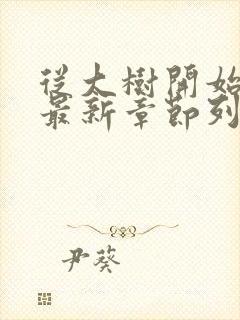 從大樹開始
最新章節列
尹葵